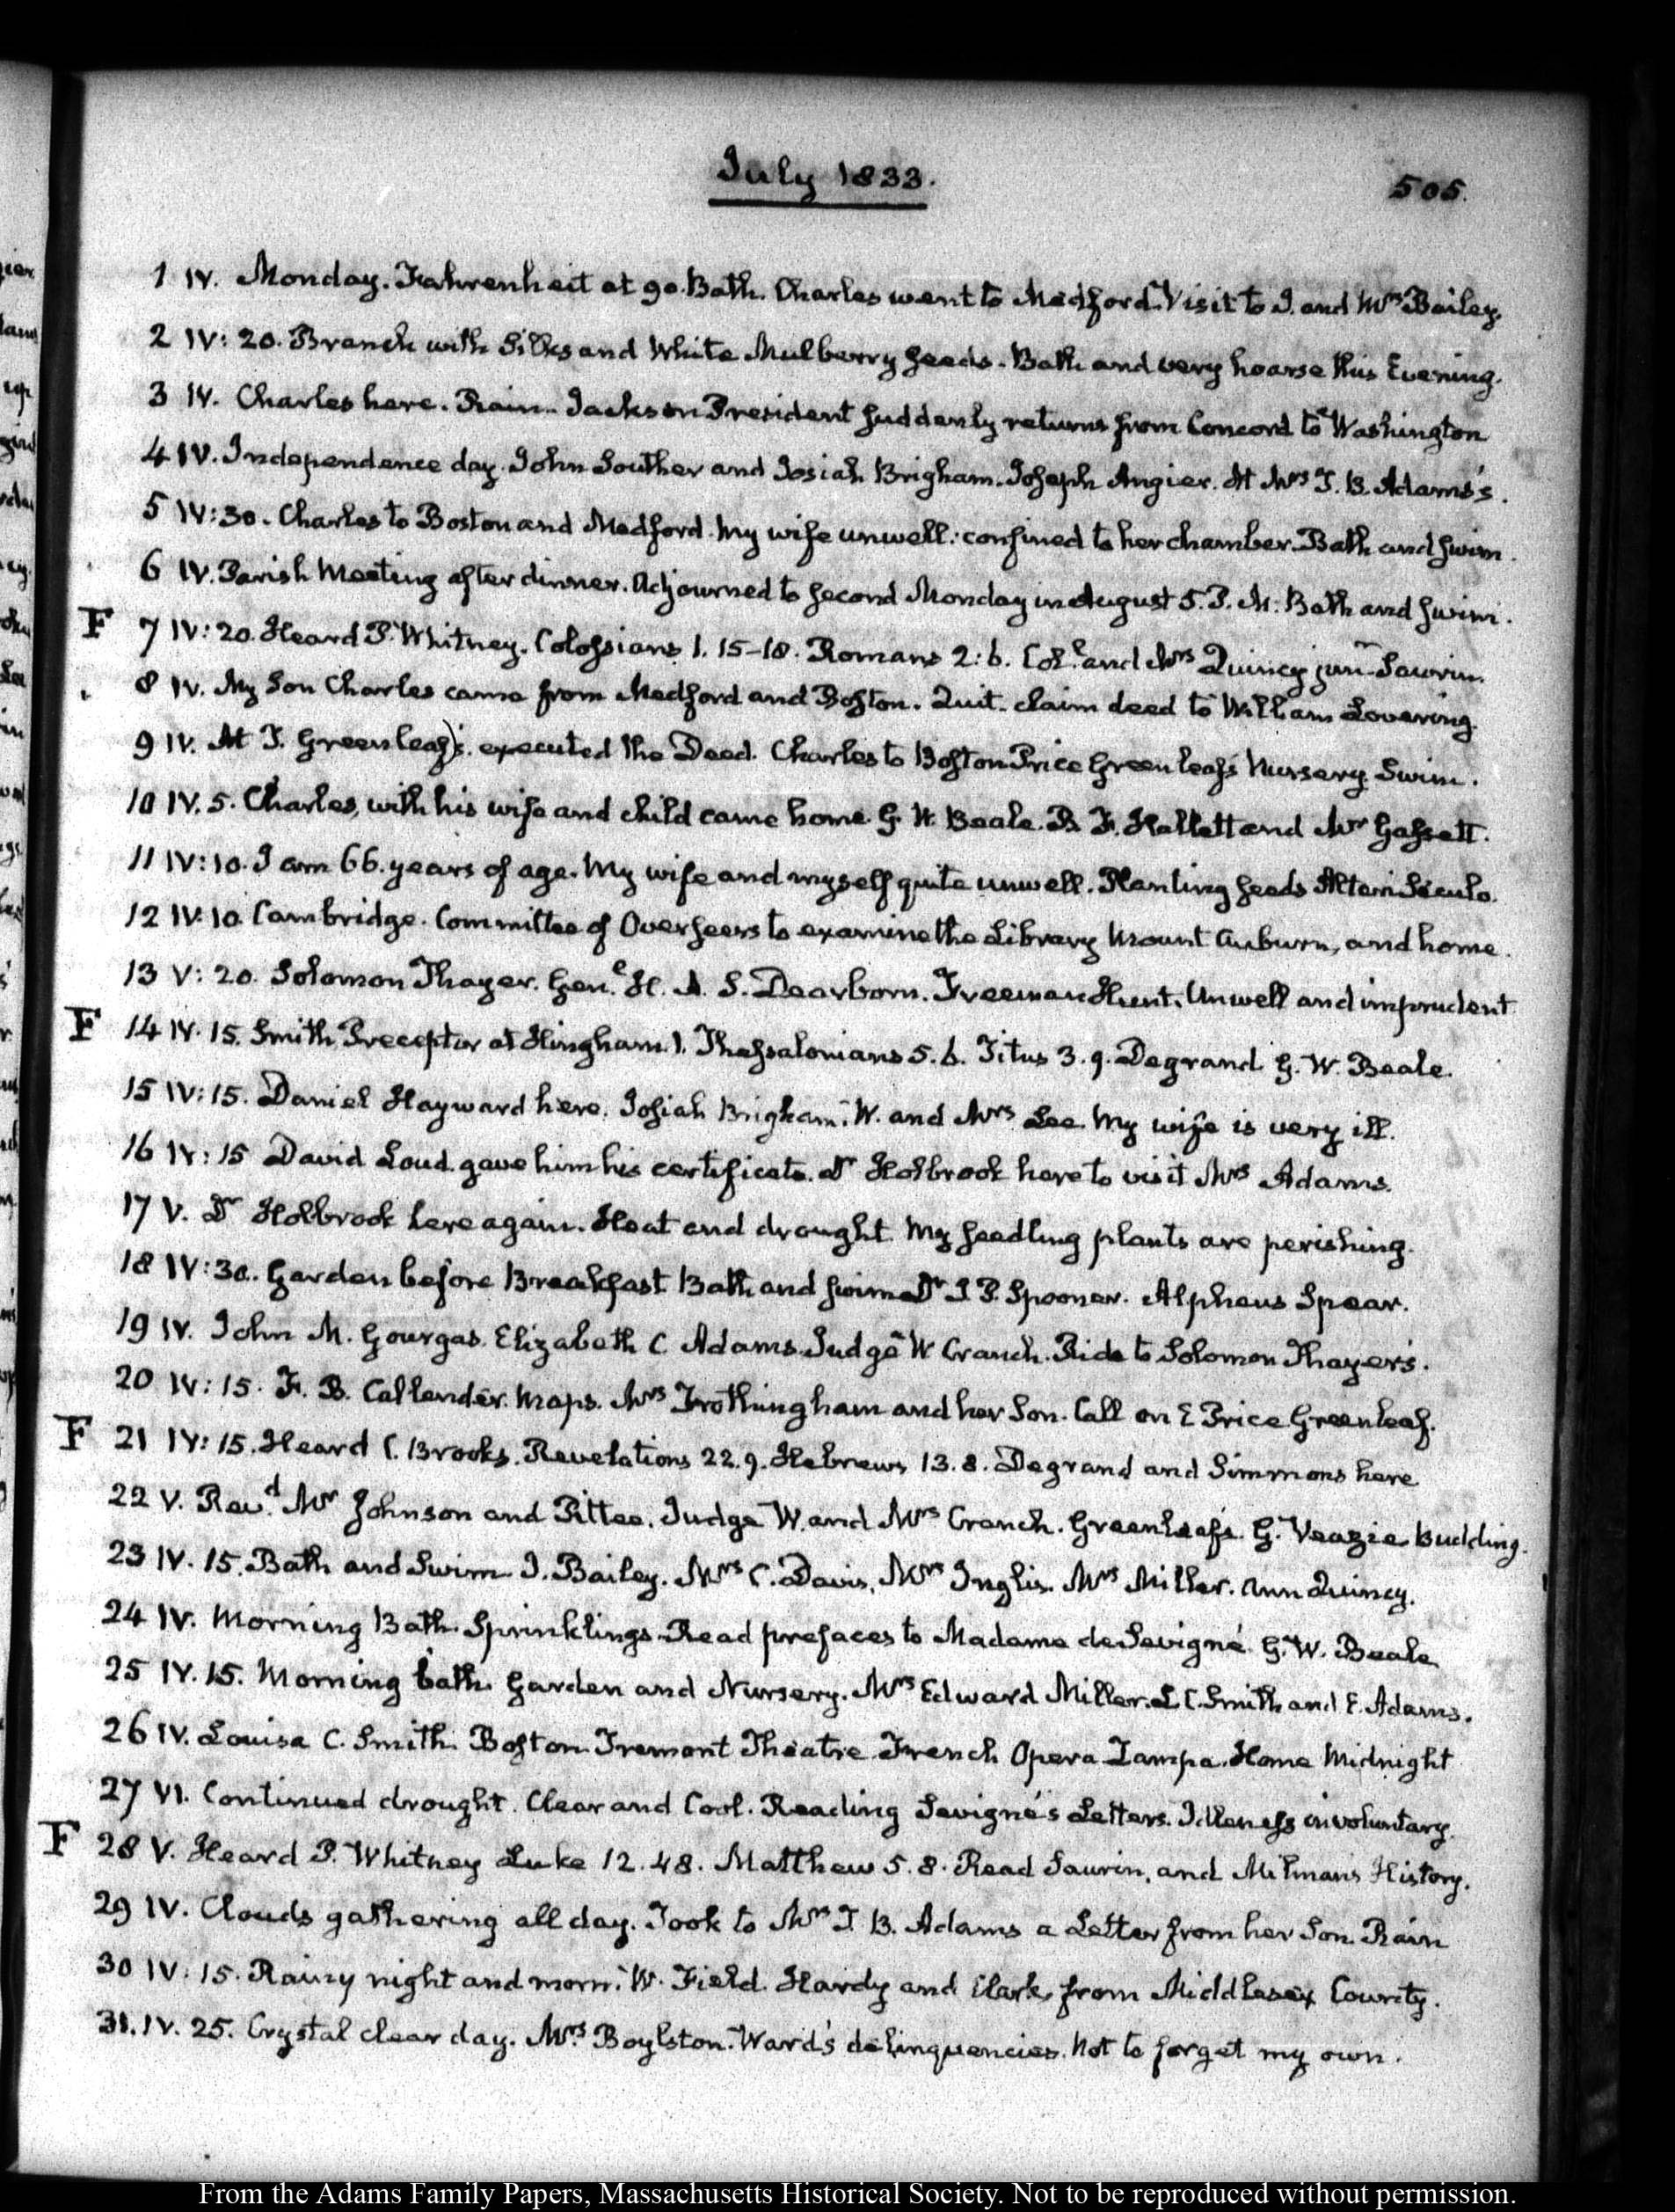 July 1833.
505.
1 IV. Monday. Fahrenheit at 90. Bath. Charles went to Medford. Visit to J. and Mrs Bailey.
2 IV: 20. Branch with Silks and White Mulberry seeds. Bath and very hoarse this Evening.
3 IV. Charles here. Rain. Jackson President suddenly returns from Concord to Washington
4 IV. Independence day. John Souther and Josiah Brigham. Joseph Angier. At Mrs T. B. Adams's.
5 IV:30. Charles to Boston and Medford. My wife unwell: confined to her chamber. Bath and swim.
6 IV. Parish Meeting after dinner. Adjourned to second Monday in August 5. P. M. Bath and swim.
F 7 IV: 20. Heard P. Whitney. Colossians 1. 15–18. Romans 2: 6. Col. and Mrs Quincy junr Saurin.
8 IV. My Son Charles came from Medford and Boston. Quit-claim deed to William Lovering.
9 IV. At T. Greenleaf's. executed the Deed. Charles to Boston Price Greenleaf's Nursery. Swim.
10 IV. 5. Charles, with his wife and child came home. G. W. Beale. B. F. Hallett and Mr Gassett.
11 IV: 10. I am 66. years of age. My wife and myself quite unwell. Planting seeds Alteri Seculo.
12 IV: 10. Cambridge. Committee of Overseers to examine the Library Mount Auburn, and home.
13 V: 20. Solomon Thayer. Genl. H. A. S. Dearborn. Freeman Hunt. Unwell and imprudent
F 14 IV. 15. Smith Preceptor at Hingham. 1. Thessalonians 5. 6. Titus 3. 9. Degrand G. W. Beale.
15 IV: 15. Daniel Hayward here. Josiah Brigham. W. and Mrs Lee. My wife is very ill.
16 IV: 15 David Loud. gave him his certificate. Dr Holbrook here to visit Mrs Adams.
17 V. Dr Holbrook here again. Heat and drought. My seedling plants are perishing.
18 IV: 30. Garden before Breakfast Bath and swim Dr J P. Spooner. Alpheus Spear.
19 IV. John M. Gourgas. Elizabeth C. Adams. Judge W Cranch. Ride to Solomon Thayer's.
20 IV: 15. F. B. Callender. Maps. Mrs Frothingham and her Son. Call on E Price Greenleaf.
F 21 IV: 15. Heard C. Brooks. Revelations 22. 9. Hebrews 13. 8. Degrand and Simmons here
22 V. Revd. Mr Johnson and Pittee. Judge W. and Mrs Cranch. Greenleafs. G. Veazie. Budding.
23 IV. 15. Bath and Swim. J. Bailey. Mrs C. Davis. Mrs Inglis. Mrs Miller. Ann Quincy.
24 IV. Morning Bath. Sprinklings. Read prefaces to Madame de Sevigné. G. W. Beale
25 IV. 15. Morning bath. Garden and Nursery. Mrs Edward Miller. L C. Smith and E. Adams.
26 IV. Louisa C. Smith. Boston Tremont Theatre French Opera Zampa. Home Midnight
27 VI. Continued drought. Clear and Cool. Reading Sevigné's Letters. Idleness involuntary.
F 28 V. Heard P. Whitney Luke 12. 48. Matthew 5. 8. Read Saurin, and Milman's History.
29 IV. Clouds gathering all day. Took to Mrs T. B. Adams a Letter from her Son. Rain
30 IV. 15. Rainy night and morn. W. Field. Hardy and Clark, from Middlesex County.
31. IV. 25. Crystal clear day. Mrs. Boylston. Ward's delinquencies. Not to forget my own.
From the Adams Family Papers, Massachusetts Historical Society. Not to be reproduced without permission.